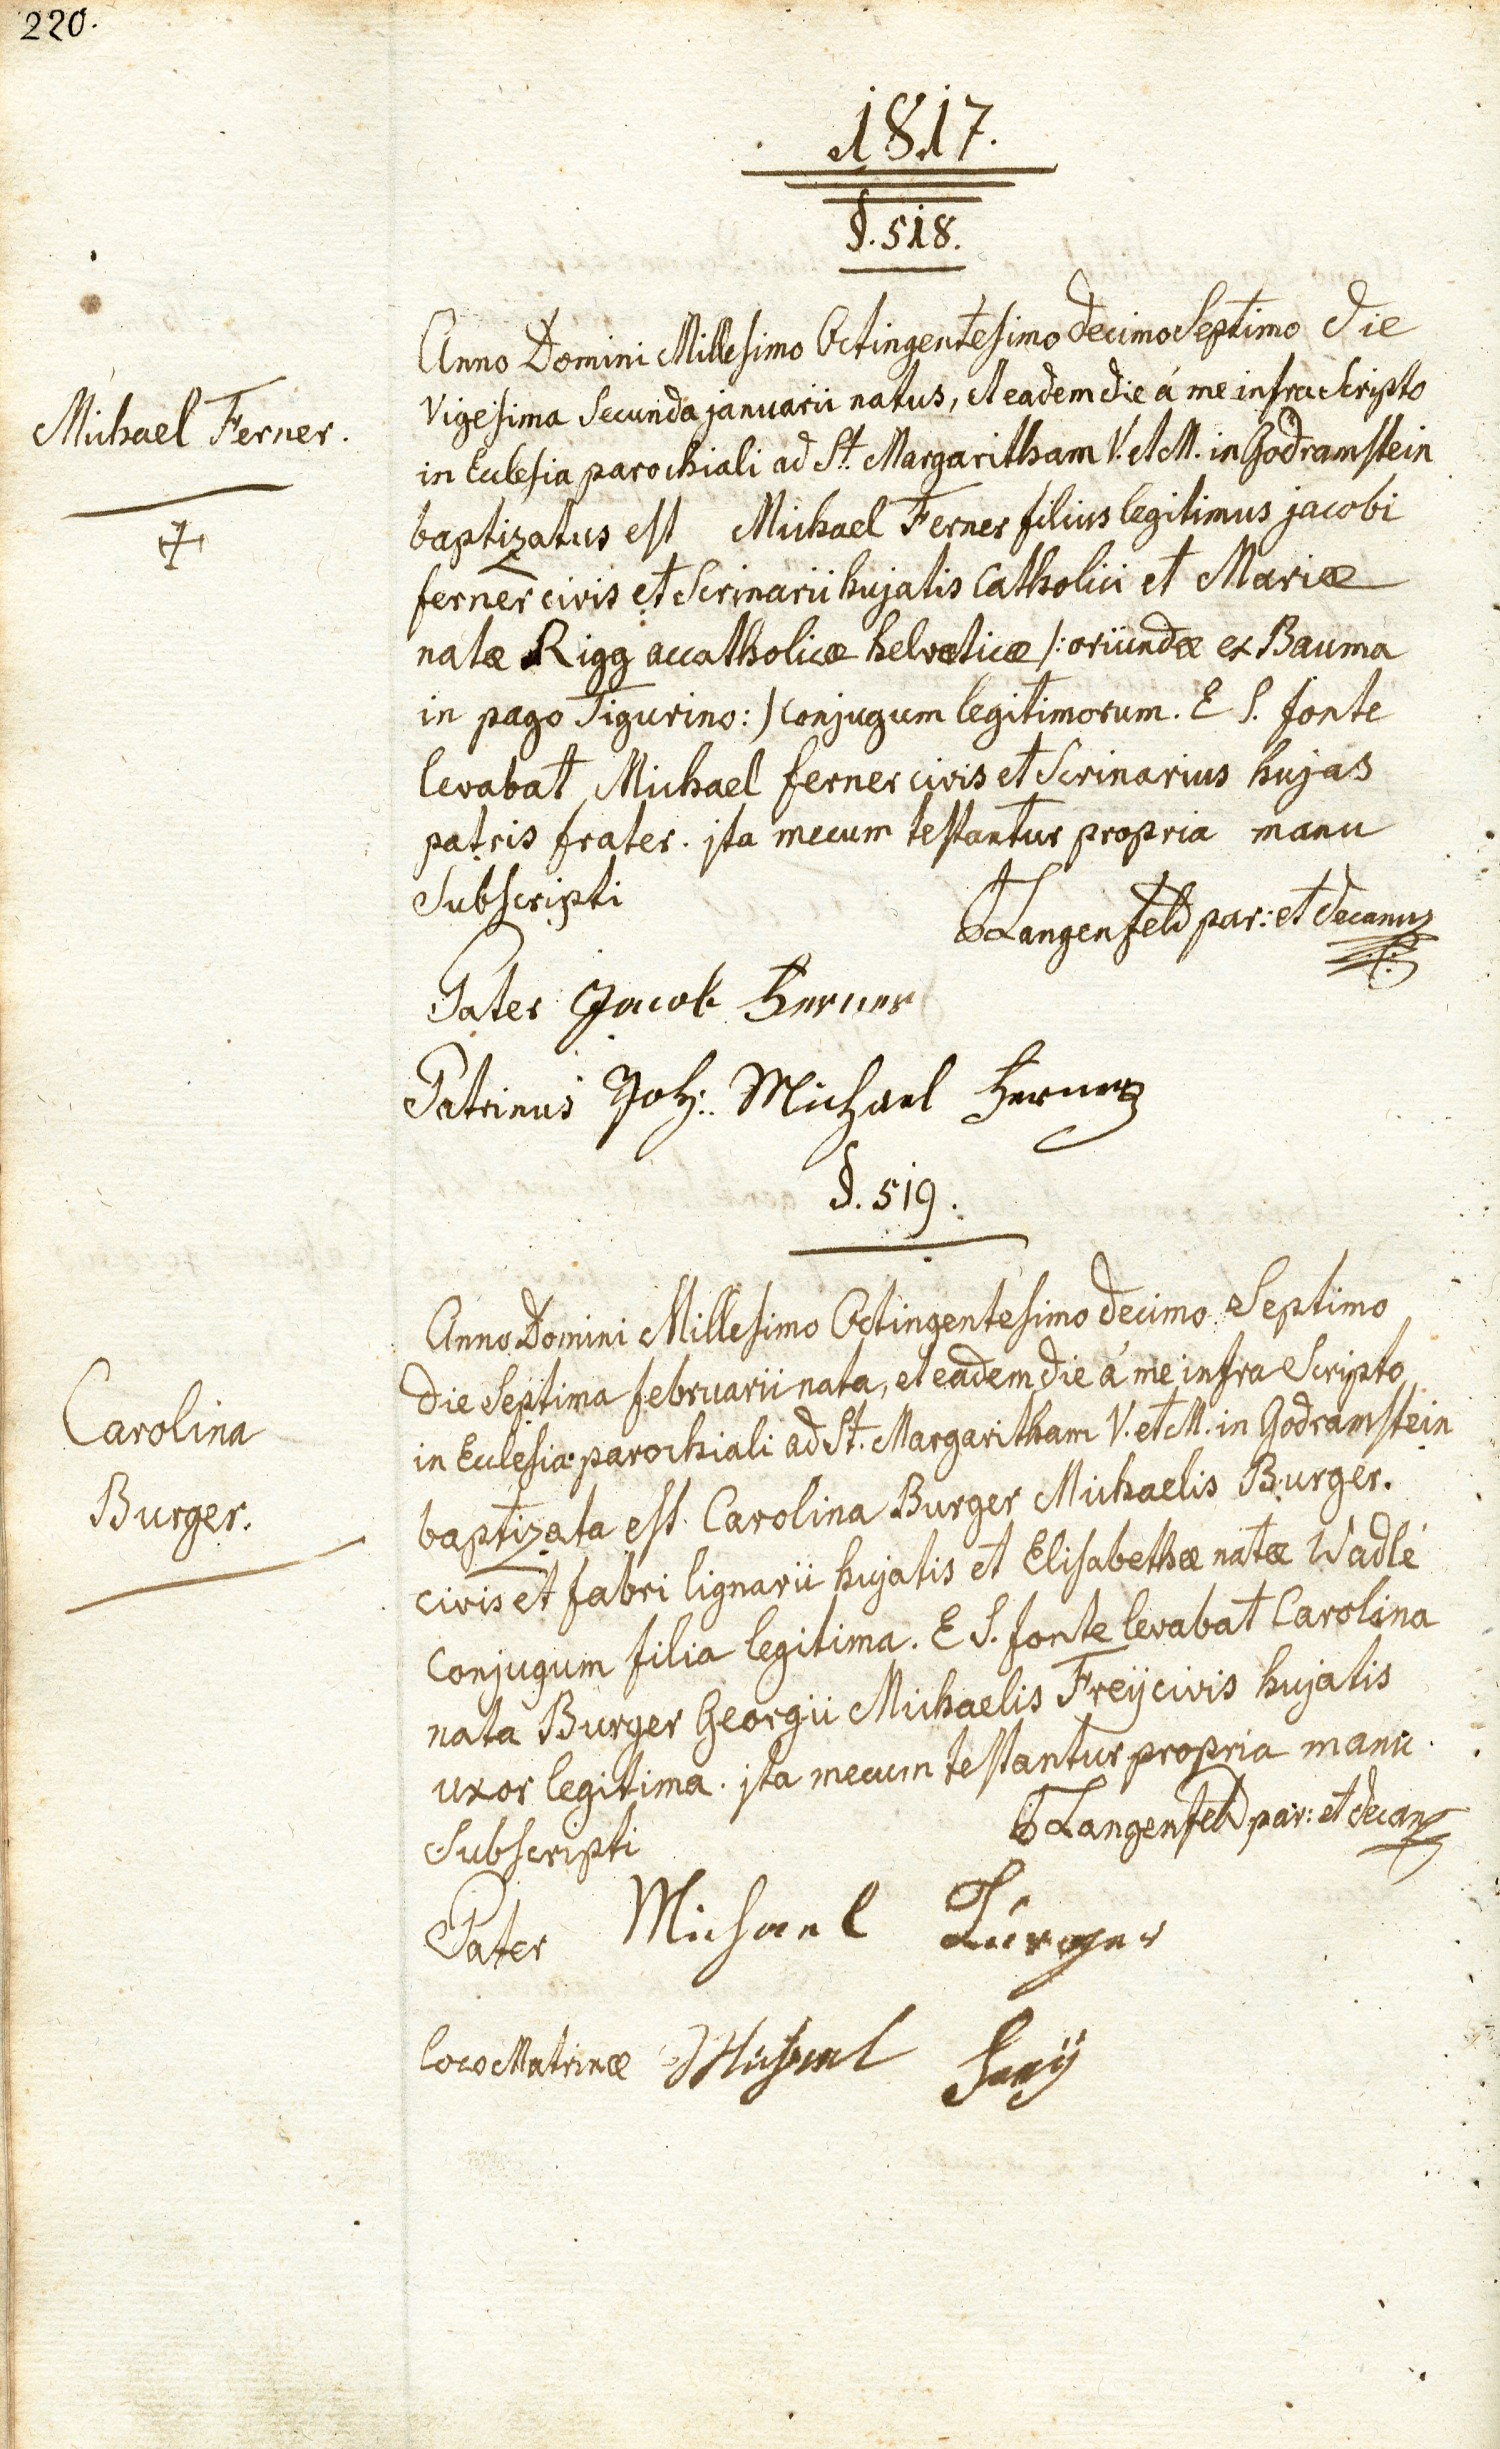 220.
1817.
§. 518.
Michael Ferner.
Anno Domini Millesimo Octingentesimo decimo Septimo die
Vigesima Secunda januarii natus, et eadem die á me infra Scripto
in Ecclesia parochiali ad St. Margaritham V. et M. in Godramstein
baptizatus est Michael Ferner filius legitimus jacobi
ferner civis et Scrinarii hujatis Catholici et Mariæ
natæ Rigg accatholicæ helveticæ /: oriundæ ex Bauma
in pago Tigurino: ) conjugum legitimorum. E S. fonte
levabat Michael ferner civis et Scrinarius hujas
patris frater. jta mecum testantur propria manu
Subscripti
Langenfeld par: et decanus
Pater Jacob Ferner
Patrinus Joh: Michael Ferner
§. 519.
Carolina
Burger.
Anno Domini Millesimo Octingentesimo decimo Septimo
die Septima februarii nata, et eadem die á me infra Scripto
in Ecclesia parochiali ad St. Margaritham V. et M. in Godramstein
baptizata est Carolina Burger Michaelis Burger.
civis et fabri lignarii hujatis et Elisabethæ natæ Wadlé
Conjugum filia legitima. E S. fonte levabat Carolina
nata Burger Georgii Michaelis Freÿ civis hujatis
uxor legitima. jta mecum testantur propria manu
Subscripti
Langenfeld par: et decan
Pater Michael Burger
loco Matrinæ Michael Freÿ